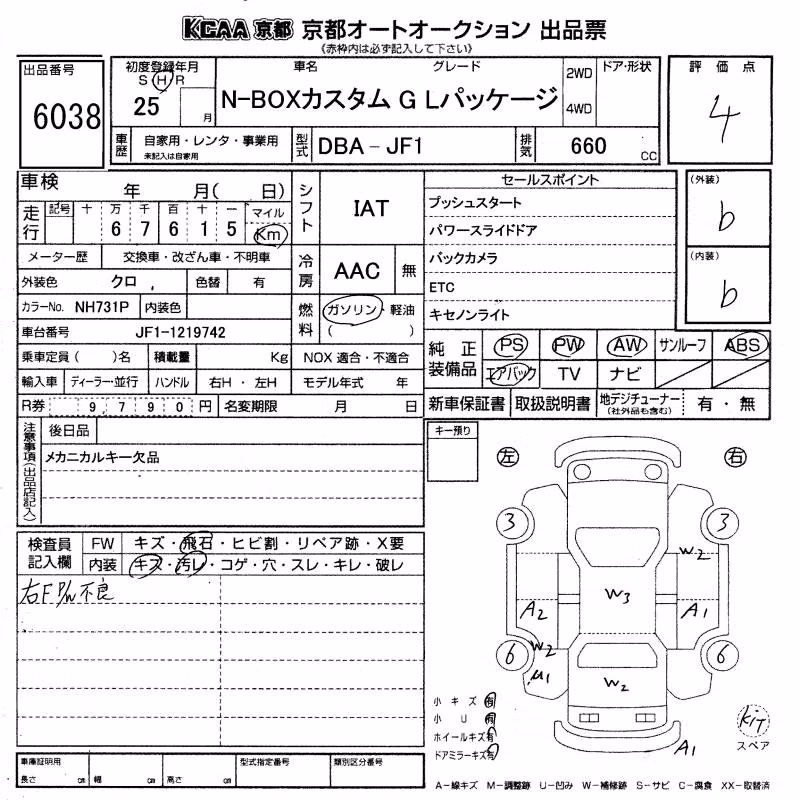 KCAA 京都 京都オートオークション 出品票
《赤枠内は必ず記入して下さい》
出品番号
6038
初度登録年月
S H R
25
月
車名 グレード
N-BOXカスタム G Lパッケージ
2WD
4WD
ドア・形状
評価点
4
車歴
自家用・レンタ・事業用
未記入は自家用
型式
DBA - JF1
排気
660
CC
車検
年 月( 日)
走行
記号 十 万 千 百 十 一 マイル
6 7 6 1 5 Km
シフト
IAT
メーター歴 交換車・改ざん車・不明車
冷房
AAC 無
外装色 クロ , 色替 有
カラーNo. NH731P 内装色
燃料
ガソリン・軽油
( )
車台番号 JF1-1219742
乗車定員( )名 積載量 Kg NOX 適合・不適合
輸入車 ディーラー・並行 ハンドル 右H・左H モデル年式 年
R券 9,790円 名変期限 月 日
セールスポイント
プッシュスタート
パワースライドドア
バックカメラ
ETC
キセノンライト
(外装)
b
(内装)
b
純正装備品
PS PW AW サンルーフ ABS
エアバック TV ナビ
新車保証書 取扱説明書 地デジチューナー 有・無
(社外品も含む)
注意事項(出品店記入)
後日品
メカニカルキー欠品
キー預り
左 右
検査員記入欄
FW キズ・飛石・ヒビ割・リペア跡・X要
内装 キズ・汚レ・コゲ・穴・スレ・キレ・破レ
右F P/W 不良
3 3
W2
W3
A2 A1
6 6
W2
μ1
W2
小キズ 有
小U 有
ホイールキズ有
ドアミラーキズ有
A1
KiT
スペア
車庫証明用
長さ cm 幅 cm 高さ cm
型式指定番号 類別区分番号
A-線キズ M-調整跡 U-凹み W-補修跡 S-サビ C-腐食 XX-取替済